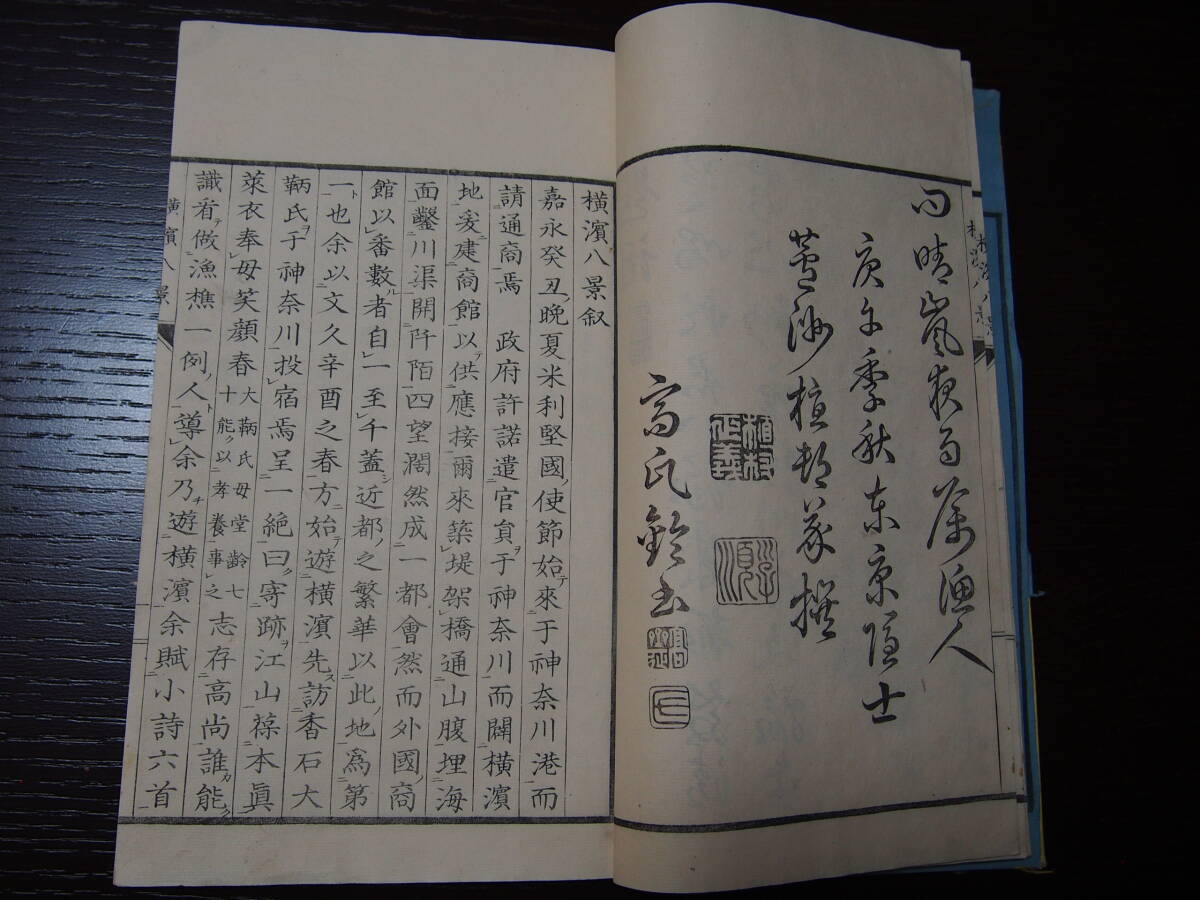 曰晴嵐夜雨属漁人
庚午季秋東京隠士
芦洲植村義撰
高氏鈴書
横濱八景叙
嘉永癸丑ノ晩夏米利堅國ノ使節始テ來于神奈川港而
請通商焉 政府許諾遣官員ヲ于神奈川而闢横濱
地爰建商館以テ供應接爾來築堤架橋通山腹埋海
面鑿川渠開阡陌四望濶然成一都會然而外國ノ商
館以番數ル者自一至千蓋シ近都ノ之繁華以此ノ地爲第
一ト也余以文久辛酉之春方ニ始テ遊横濱先ス訪香石大
鞆氏ヲ于神奈川投宿焉呈一絶曰ク寄跡ヲ江山葆本眞
萊衣奉母笑顔春大鞆氏母堂齢七十能ク以孝養事之志存高尚誰カ能ク
識看テ做漁樵一例ノ人ト導余乃チ遊横濱余賦小詩六首
横濱八景